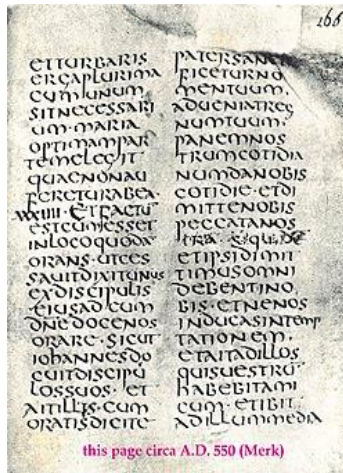 166
ETTURBARIS
ERGAPLURIMA
CUMUNUM
SITNECESSARI
UM·MARIA
OPTIMAMPAR
TEMELEGIT
QUAENONAU
FERETURABEA·
XXVIIII·ETFACTŪ
ESTCUMESSET
INLOCOQUODĀ
ORANS·UTCES
SAUITDIXITUNUS
EXDISCIPULIS
EIUSADEUM
DNEDOCENOS
ORARE·SICUT
IOHANNESDO
CUITDISCIPU
LOSSUOS·ET
AITILLIS·CUM
ORATISDICITE
PATERSANC
FICETURNO
MENTUUM.
ADUENIATREG
NUMTUUM·
PANEMNOS
TRUMCOTIDIA
NUMDANOBIS
COTIDIE·ETDI
MITTENOBIS
PECCATANOS
TRA·SIQUIDĒ
ETIPSIDIMIT
TIMUSOMNI
DEBENTINO
BIS·ETNENOS
INDUCASINTEMP
TATIONEM.
ETAITADILLOS
QUISUESTRŪ
HABEBITAMI
CUM·ETIBIT
ADILLUMMEDIA
this page circa A.D. 550 (Merk)